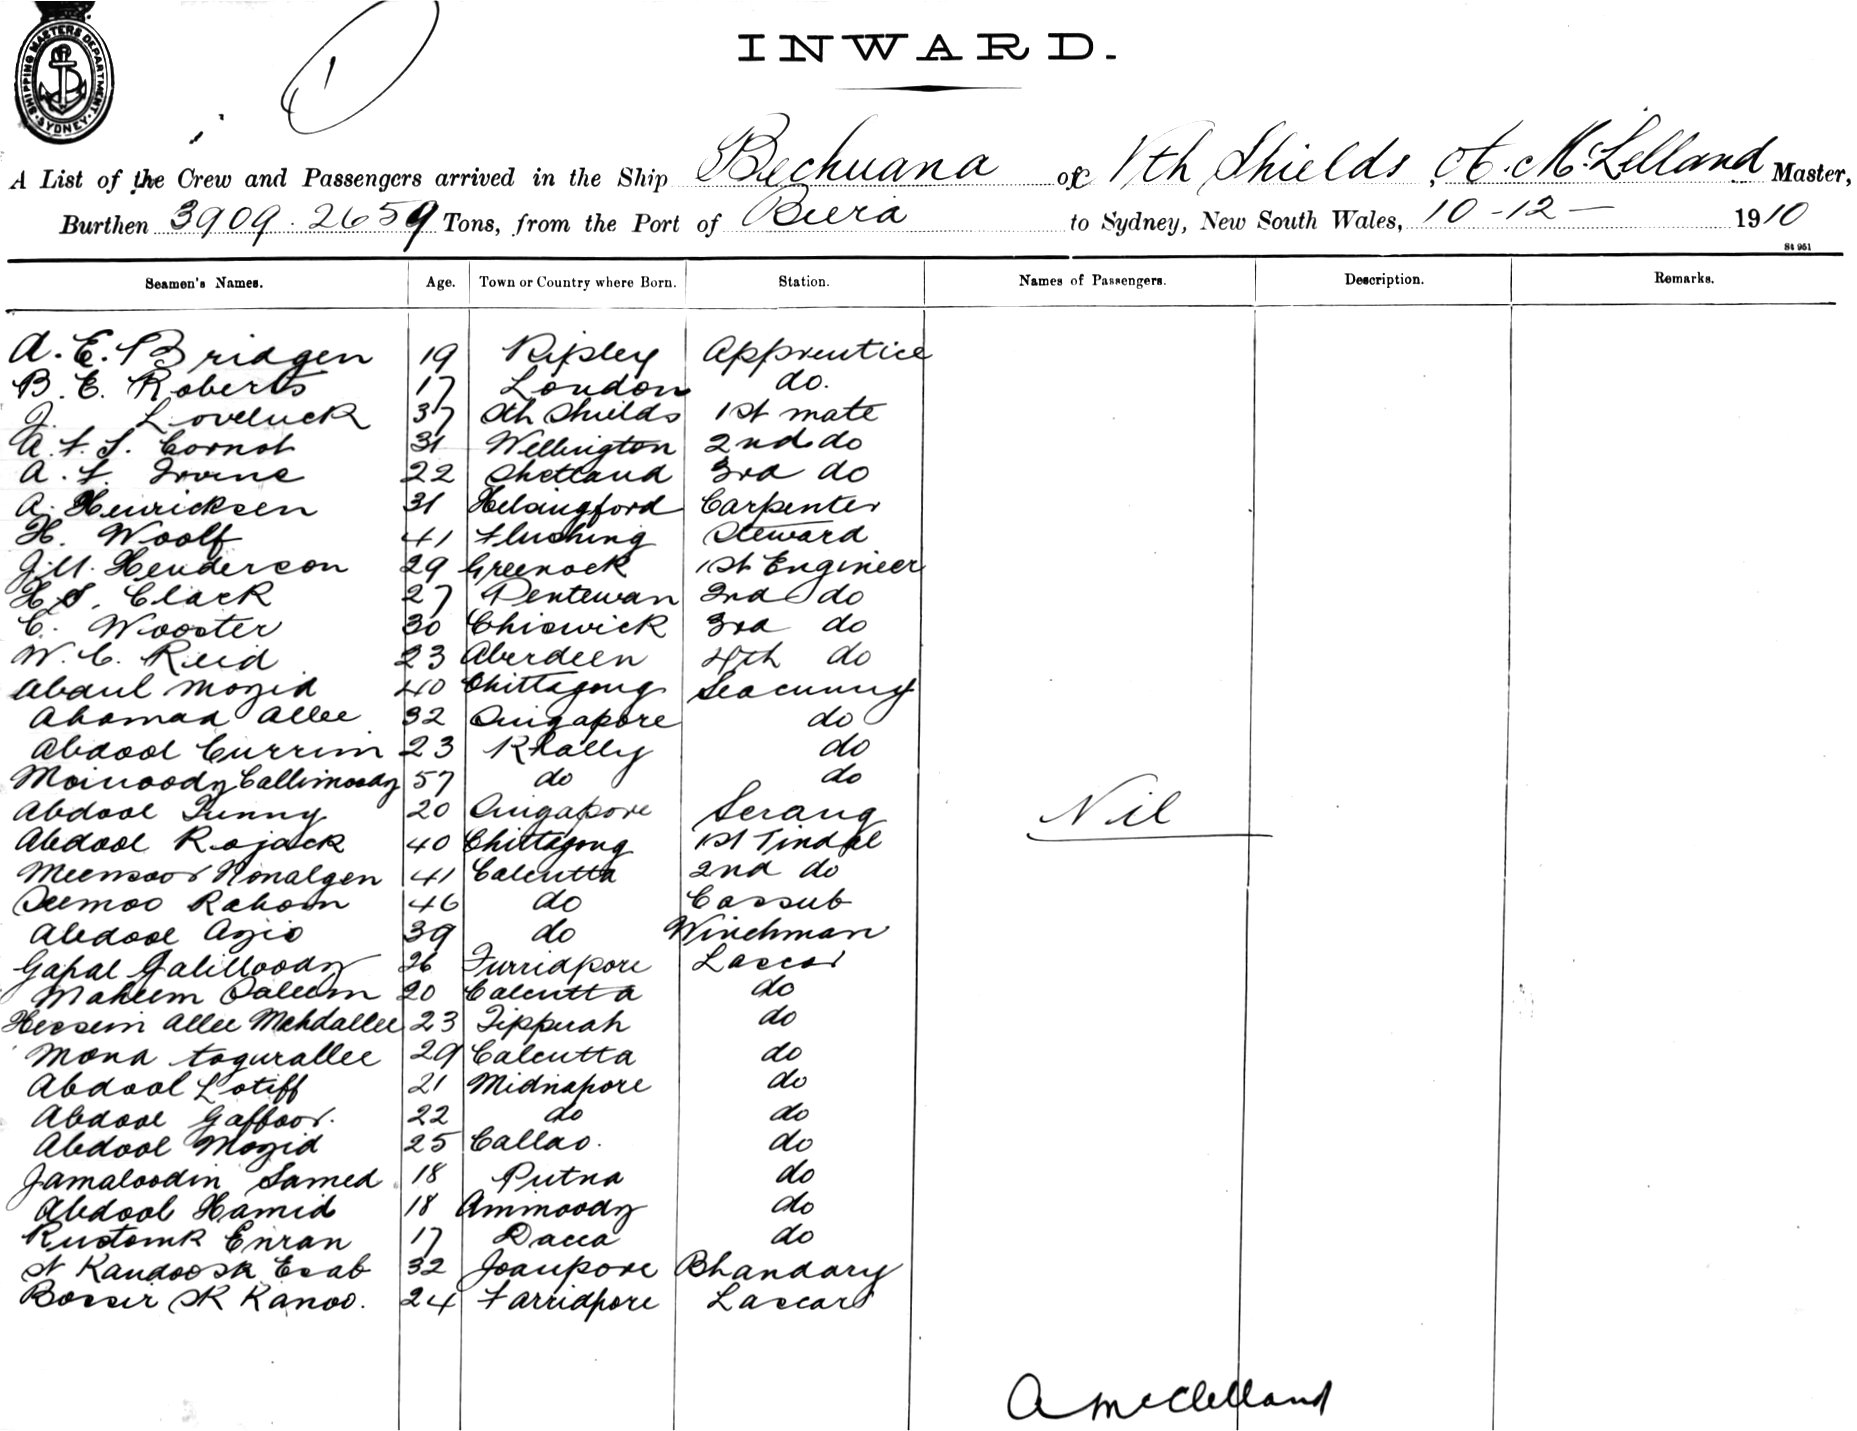 SHIPPING MASTERS DEPARTMENT. SYDNEY.
1
INWARD.
A List of the Crew and Passengers arrived in the Ship Bechuana of Nth Shields A. McLelland Master,
Burthen 3909. 2659 Tons, from the Port of Beira to Sydney, New South Wales, 10-12- 1910
S4 951
Seamen's Names. Age. Town or Country where Born. Station. Names of Passengers. Description. Remarks.
A. E. Bridgen 19 Ripley Apprentice
B. E. Roberts 17 London do.
J. Loveluck 37 Sth Shields 1st mate
A. F. S. Cornot 31 Wellington 2nd do
A. F. Irvine 22 Shetland 3rd do
A. Henricksen 31 Helsingford Carpenter
H. Woolf 41 Flushing Steward
J. M. Henderson 29 Greenock 1st Engineer
H. S. Clack 27 Pentewan 2nd do
C. Wooster 30 Chiswick 3rd do
W. C. Reid 23 Aberdeen 4th do
Abdul Mozid 40 Chittagong Seacunny
Ahamad Allee 32 Singapore do
Abdool Currim 23 Rhally do
Moinoody Callimoody 57 do do
Abdool Gunny 20 Singapore Serang
Nil
Abdool Rojack 40 Chittagong 1st Tindal
Meensoor Nonalgen 41 Calcutta 2nd do
Deemoo Rahom 46 do Cassub
Abdool Azis 39 do Winchman
Gapal Galilloody 26 Furridpore Lascar
Maheem Saleem 20 Calcutta do
Hessein Allee Mahdallee 23 Tippuah do
Mona togurallee 29 Calcutta do
Abdool Lotiff 21 Midnapore do
Abdool Gaffoor. 22 do do
Abdool Mozid 25 Callao. do
Jamaloodin Samed 18 Putna do
Abdool Hamid 18 Ammoody do
Rustomk Enran 17 Dacca do
Kandoo Sk Esab 32 Joanpore Bhandary
Bosser SK Kanoo. 24 Farridpore Lascars
A McClelland